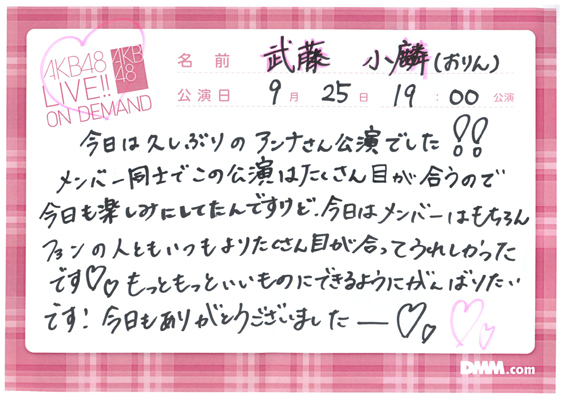 AKB48
LIVE!!
ON DEMAND
AKB
48
名前 武藤 小麟(おりん)
公演日 9月 25日 19:00 公演
今日は久しぶりのアンナさん公演でした!!
メンバー同士でこの公演はたくさん目が合うので
今日も楽しみにしてたんですけど、今日はメンバーはもちろん
ファンの人ともいつもよりたくさん目が合ってうれしかった
です♡♡もっともっといいものにできるようにがんばりたい
です!今日もありがとうございましたー♡♡ ♡♡
DMM.com